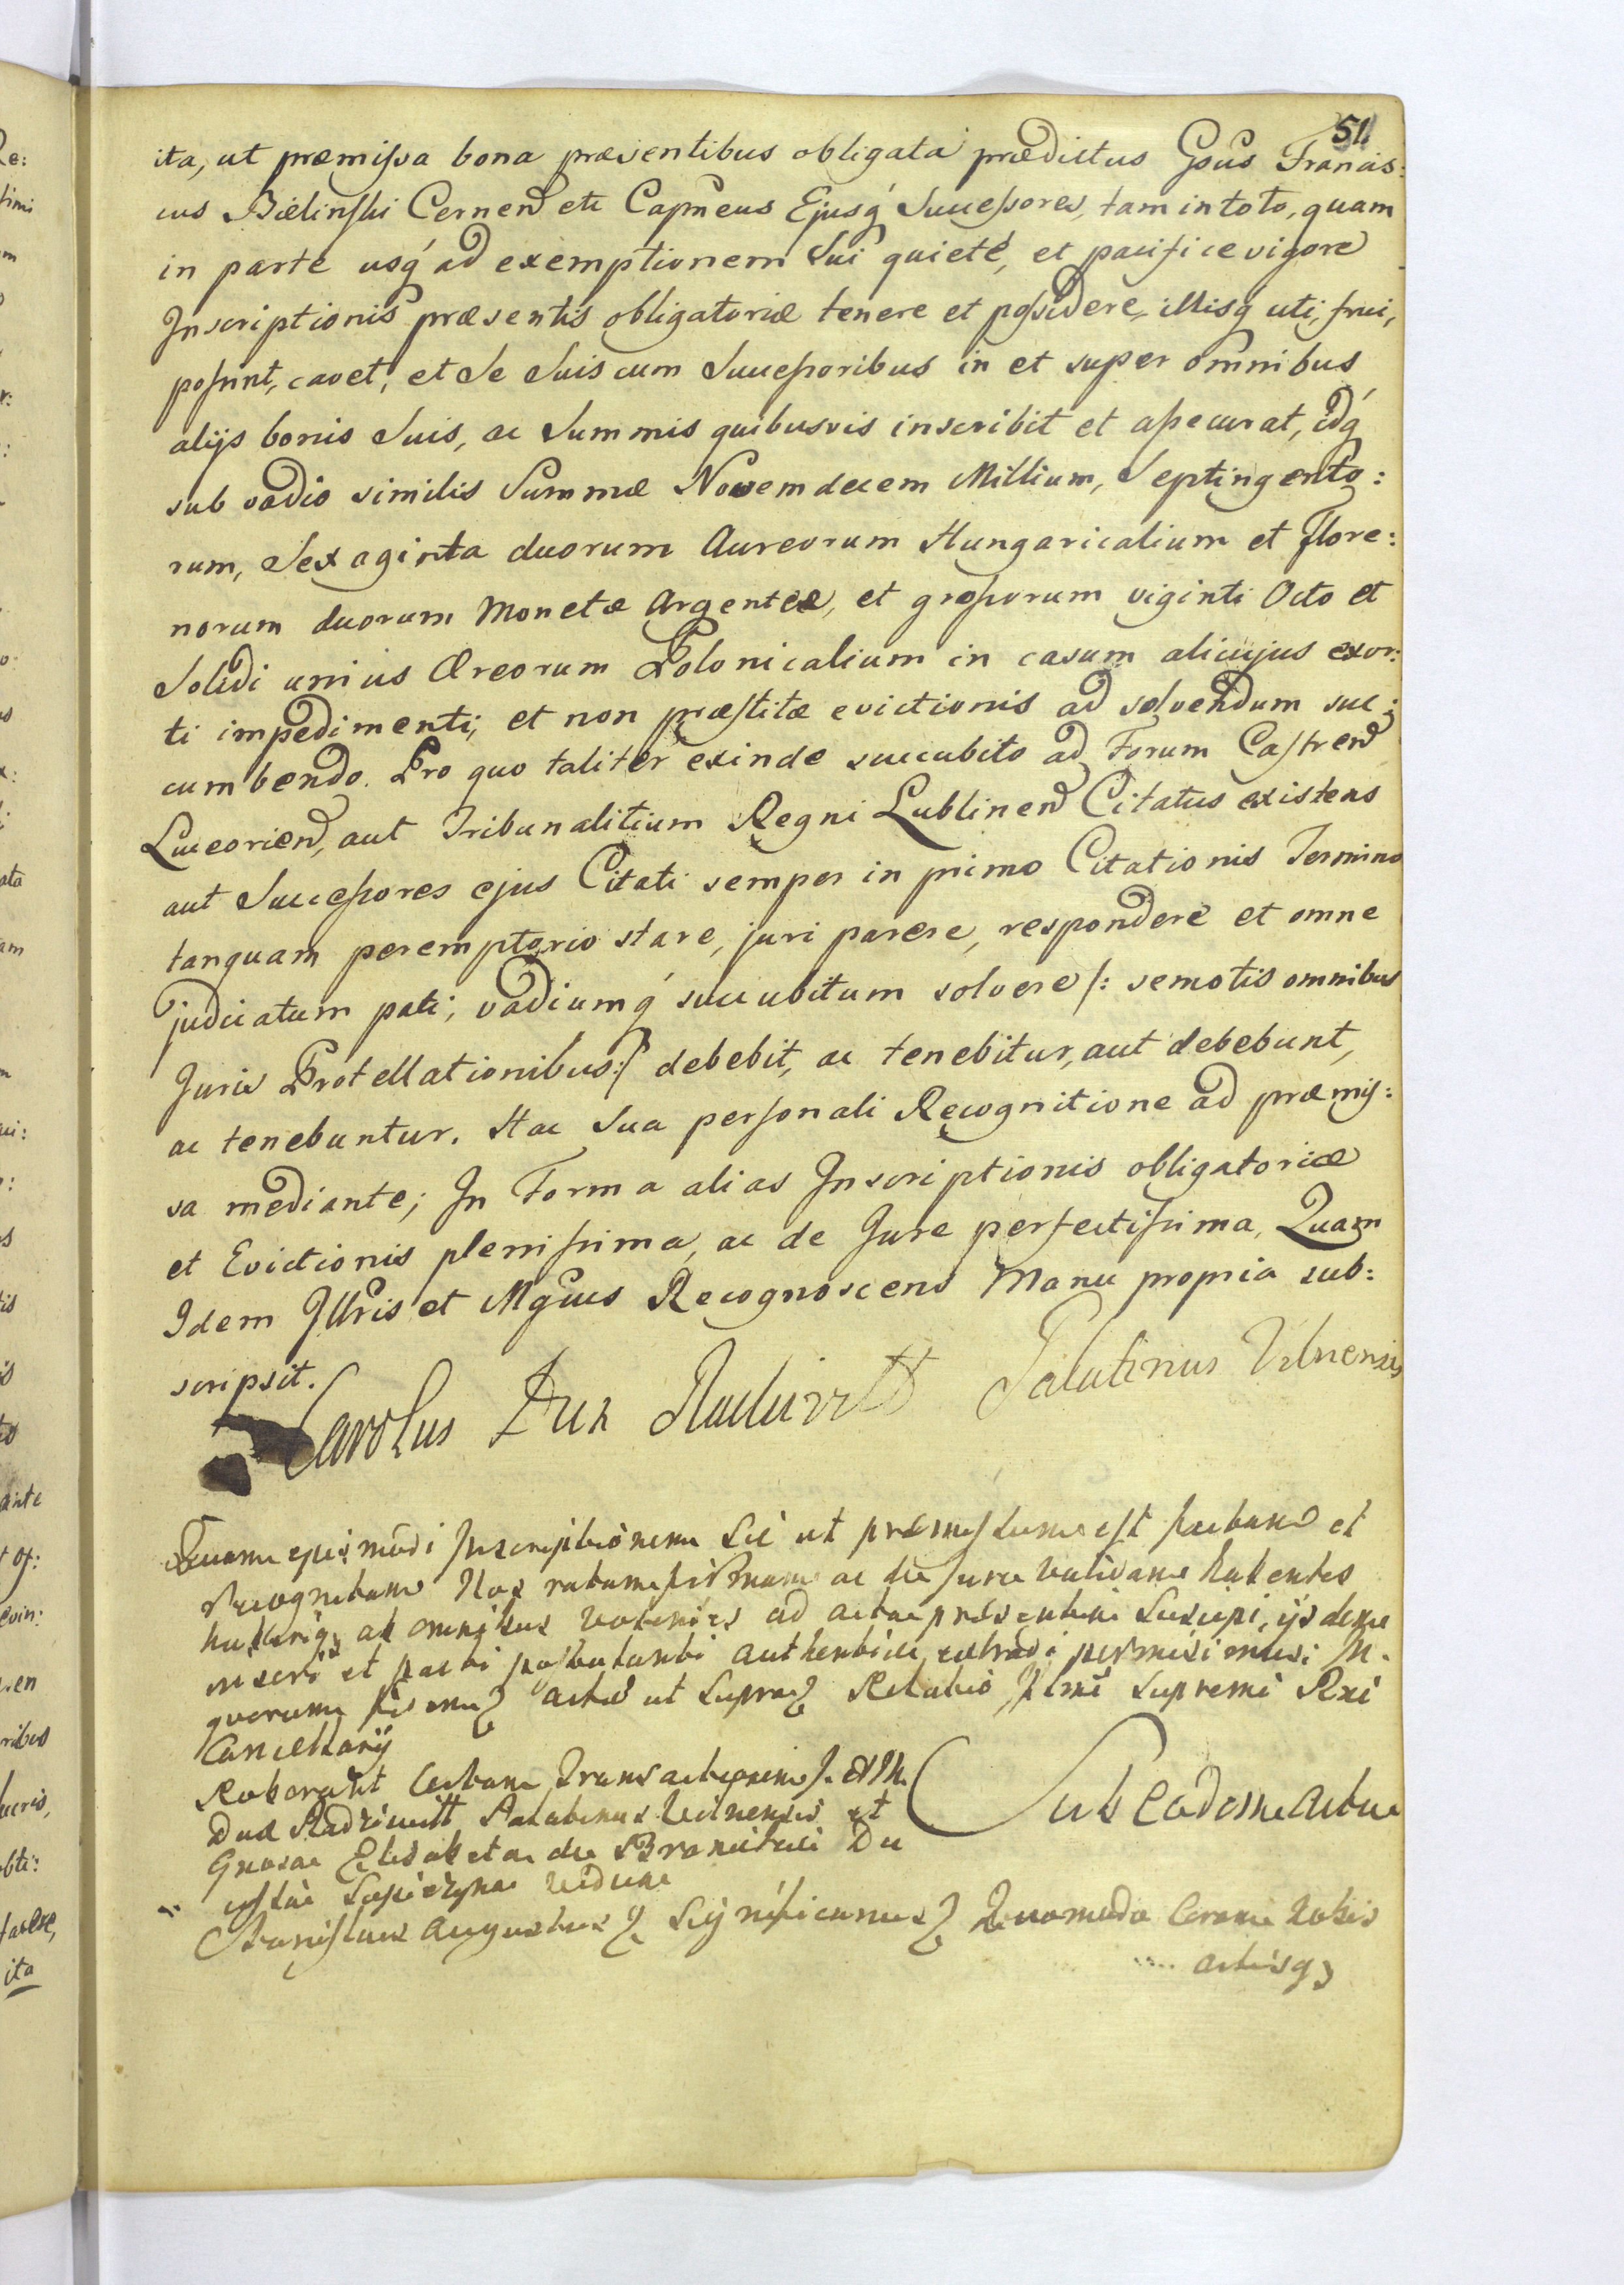 51
ita, ut præmissa bona præsentibus obligata prædictus Gsus Francis:
cus Bielinski Cernen etc Capneus Ejusq́ Successores, tam in toto, quam
in parte usq́ ad exemptionem Sui quieté, et pacifice vigore
Inscriptionis præsentis obligatoriæ tenere et possidere, illisq uti, frui,
possint, cavet, et Se Suis cum Successoribus in et super omnibus
alijs bonis Suis, ac Summis quibusvis inscribit et assecurat, idq́
sub vadio similis Summæ Novemdecem Millium, Septingento:
rum, Sexaginta duorum Aureorum Hungaricalium et flore:
norum duorum Monetæ Argenteæ, et grossorum viginti Octo et
Solidi unius Æreorum Polonicalium in casum alicujus exor:
ti impedimenti, et non præstitæ evictionis ad solvendum suc:
cumbendo. Pro quo taliter exinde succubito ad Forum Castren
Luceorien, aut Tribunalitium Regni Lublinen Citatus existens
aut Successores ejus Citati semper in primo Citationis Termino
tanquam peremptorio stare, juri parere, respondere et omne
judicatum pati, vadiumq́ succubitum solvere /: semotis omnibus
Juris Protellationibus :/ debebit, ac tenebitur, aut debebunt,
ac tenebuntur. Hac Sua personali Recognitione ad præmis:
sa mediante; In Forma alias Inscriptionis obligatoriæ
et Evictionis plenissima, ac de Jure perfectissima, Quam
Idem Illris et Mgcus Recognoscens Manu propria sub:
scripsit.
Carolus Dux Radziwiłł Palatinus Vilnensis
Quam ejusmodi Inscriptionem Sic ut præmissum est factam et
Recognitam Nos ratam firmam ac de Jure validam habentes
haberiq; ab omnibus volentes ad acta præsentia Suscipi, ijsdem
inseri et parti postulanti authentice extradi permisimus. In
quorum fidem Actum ut Supra Relatio Supremi Rni
Cancellarij
Roborant Certam Transactionem I. et M.
Dux Radziwiłł Palatinus Vilnensis et
Gnosa Elisabeta de Branickie Du
cissa Sapieżyna Vidua
Sub Eodem Actu
Stanislaus Augustus Significamus Quomodo Coram Nobis
Actisq;